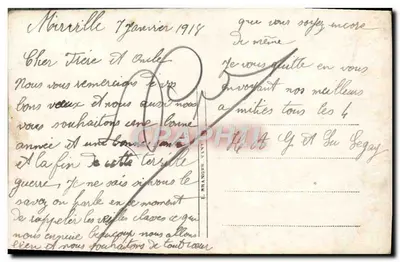 Mirville 7 Janvier 1918
Cher Frère et Oncle
Nous vous remercions de vos
bons vœux et nous aussi nous
vous souhaitons une bonne
année et une bonne santé
et la fin de cette terrible
guerre; Je ne sais si vous le
savez on parle en ce moment
de rappeler les vieilles classes ce qui
nous ennuie beaucoup nous allons
bien et nous souhaitons de tout cœur
que vous soyez encore
de même
Je vous quitte en vous
envoyant nos meilleurs
amitiés tous les 4
A G et Legay
CARTFRA